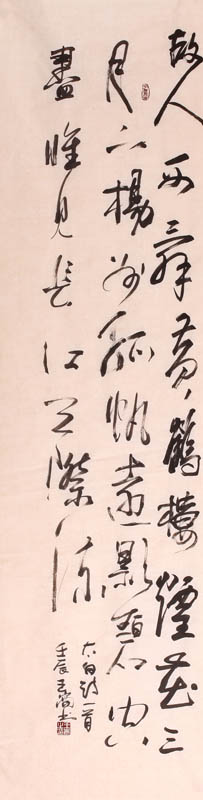 故人西辞黄鹤楼烟花三
月下扬州孤帆远影碧空
尽唯见长江天际流
太白诗一首
壬辰